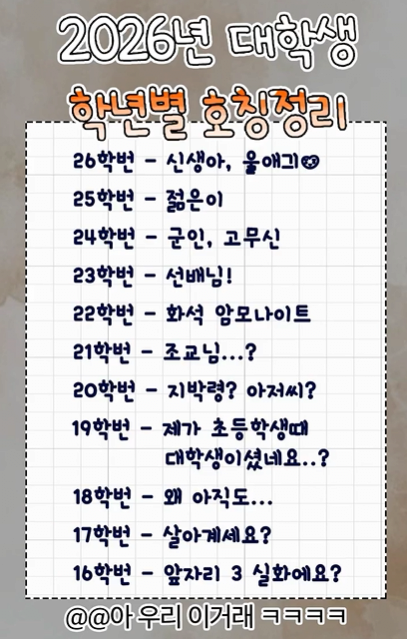 2026년 대학생
학년별 호칭정리
26학번 - 신생아, 울애긔🐶
25학번 - 젊은이
24학번 - 군인, 고무신
23학번 - 선배님!
22학번 - 화석 암모나이트
21학번 - 조교님...?
20학번 - 지박령? 아저씨?
19학번 - 제가 초등학생때
대학생이셨네요..?
18학번 - 왜 아직도...
17학번 - 살아계세요?
16학번 - 앞자리 3 실화에요?
@@아 우리 이거래 ㅋㅋㅋㅋ